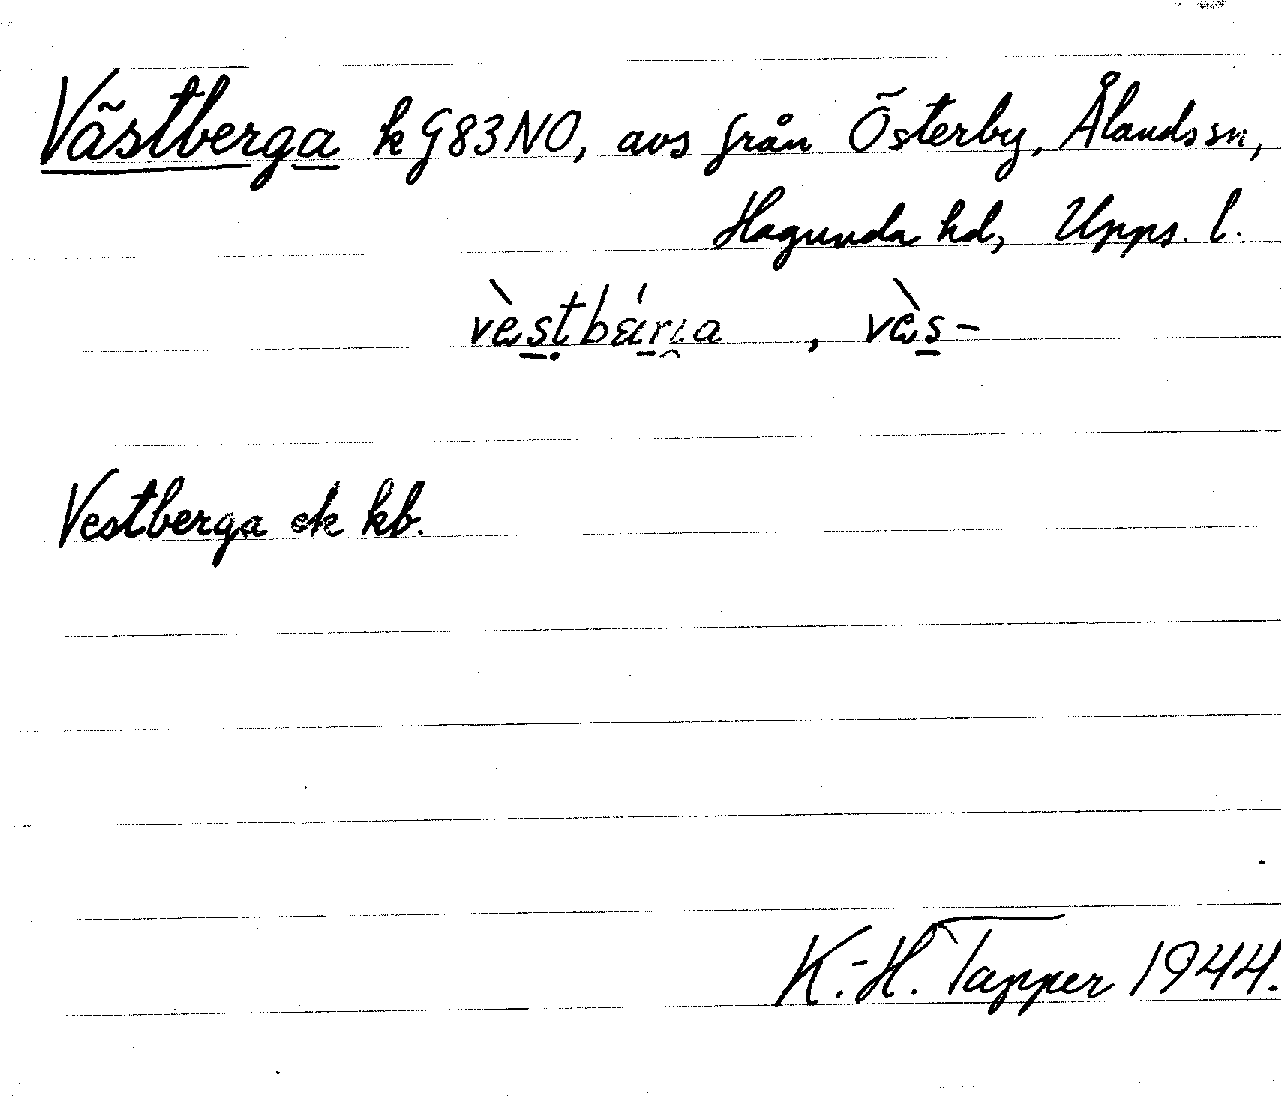 Västberga k G83NO, avs från Österby, Ålands sn,
Hagunda hd, Upps. l.
vèstbár̯ia, vès-
Vestberga ek kb.
K.-H. Tapper 1944.